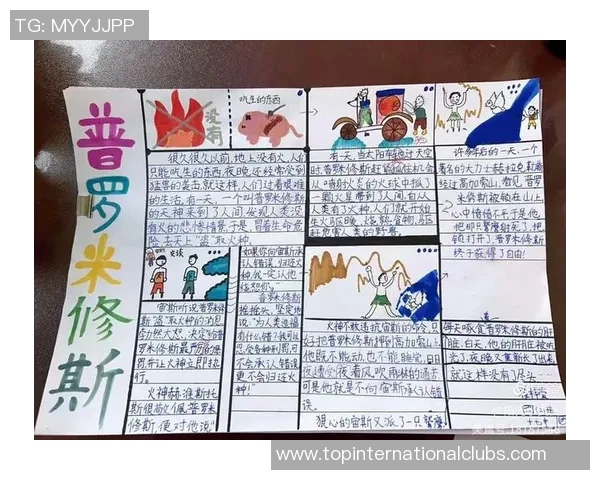 TG: MYYJJPP
普罗米修斯
没有
吃生的东西
很久很久以前,地上没有火,人们
只能吃生的东西,夜晚还经常受到
猛兽的袭击,就这样,人们过着艰难
的生活。有一天,一个叫普罗米修斯
的天神来到了人间,发现人类没
有火的悲惨情景,于是,冒着生命危
险,去天上“盗”取火种。
有一天,当太阳车
普罗米修斯
从喷射火炎的火球中抓了
一颗火星带到了人间。自从
人类有了火种,人们就开始
生火驱暖、烧熟食物、驱赶
危害人类的野兽。
许多年后的一天,一个
著名的大力士赫拉克勒斯
经过高加索山,看见,普罗
米修斯被锁在山上,
心中愤愤不
终于获得了自由!
交谈
宙斯听说普罗米
修斯“盗”取火种的消息,
决定给普
罗米修斯最严厉的惩
罚,并让火神立即执
行。
火神赫淮斯托
斯很敬佩普罗米
修斯,便对他说“
如果你向宙斯承
认错误,归还火
种,我一定
普罗米修斯
摇摇头,坚定地
说,“为人类造福,
有什么错?我可以
忍受各种
不会承认错误,
更不会归还火
种!”
火神不敢违抗宙斯的命令,只
好把普罗米修斯押到高加索山上。
他既不能动,也不能睡觉,日日
夜夜遭受
可是他就是不向宙斯承认错
误。
狠心的宙斯又派了一只鹫鹰
每天啄食普罗米修斯的肝
脏,白天,他的肝脏被吃
光了,夜晚又重新长了出来,
就这样没有了尽头……
www.topinternationalclubs.com